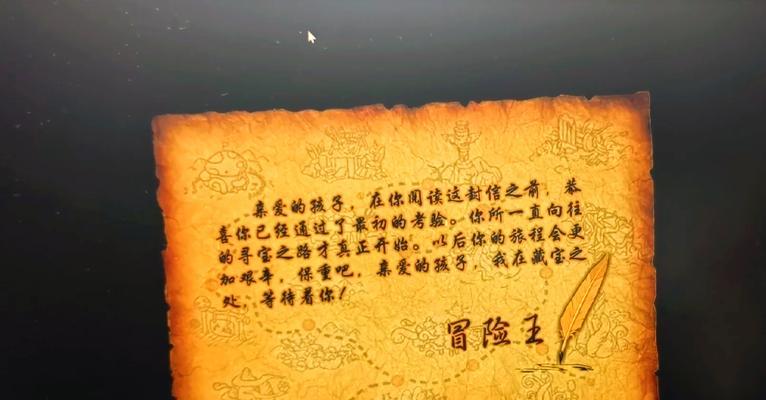 亲爱的孩子，在你阅读这封信之前，恭
喜你已经通过了最初的考验。你所一直向往
的寻宝之路才真正开始。以后你的旅程会更
加艰辛，保重吧，亲爱的孩子，我在藏宝之
处，等待着你！
冒险王